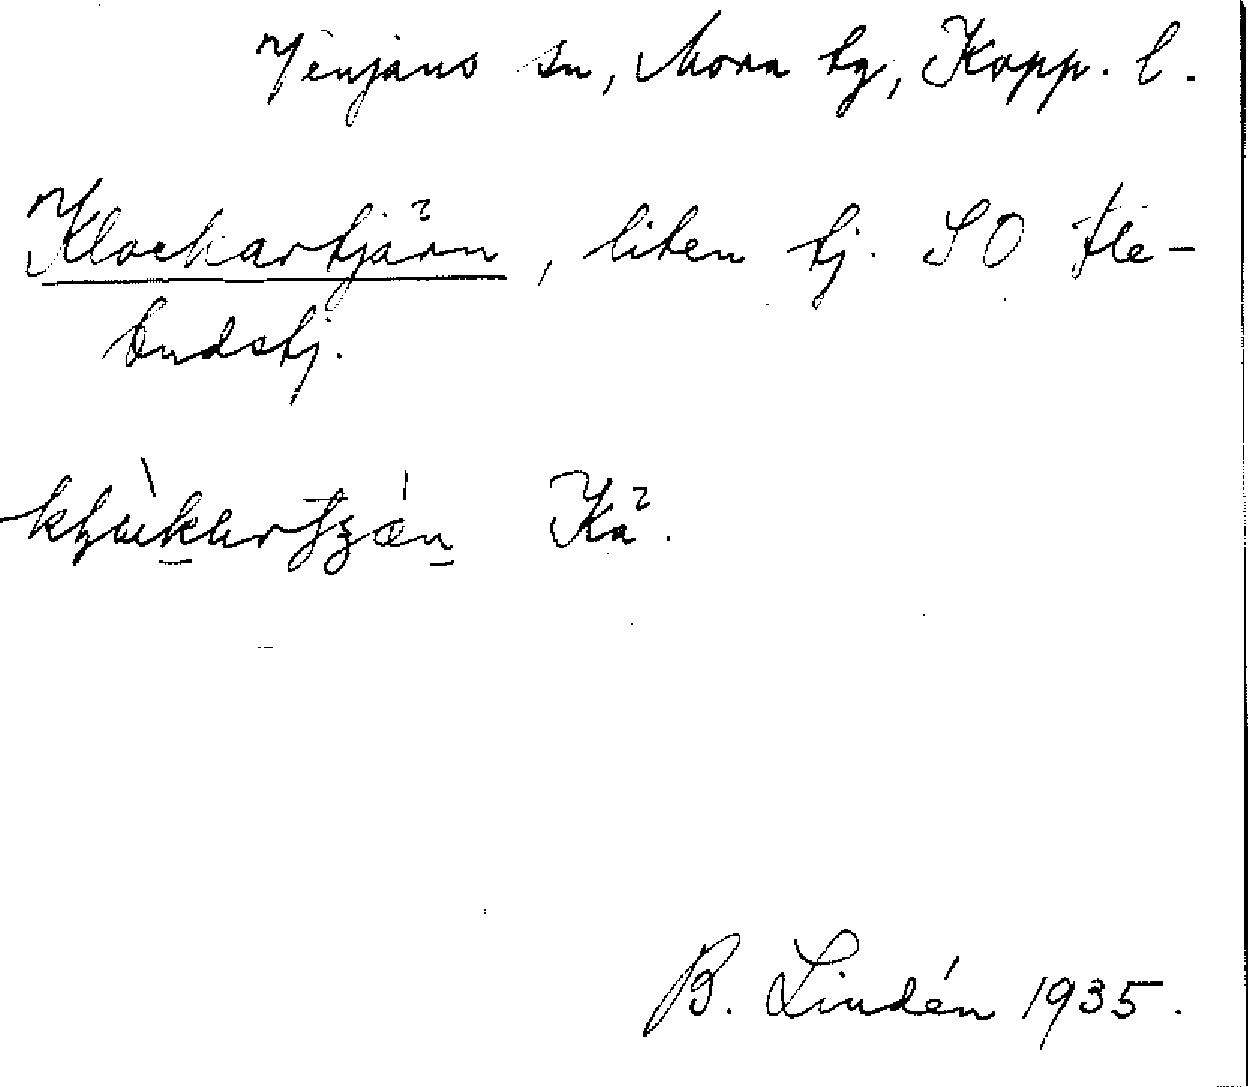 Venjans sn, Mora tg, Kopp. l.
Klockartjärn, liten tj. SO Fle-
budstj.
Kå.
B. Lindén 1935.